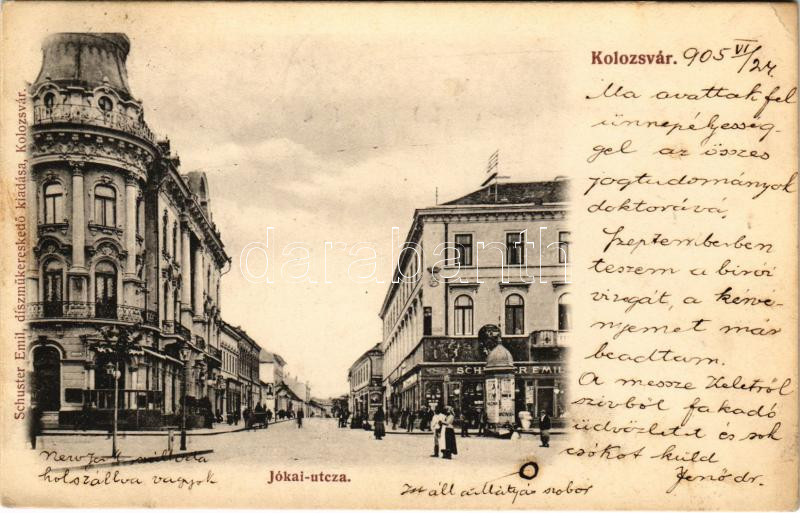 Kolozsvár. 905 VI/24
Ma avattak fel
ünnepélyesség-
gel az összes
jogtudományok
doktorává.
Szeptemberben
teszem a birói
vizsgát, a kérvé-
nyemet már
beadtam.
A messze Keletről
szívből fakadó
üdvözletet és sok
csókot küld
Jenő dr.
Schuster Emil, díszműkereskedő kiadása, Kolozsvár.
darabanth
SCHUSTER EMIL
New-York szálloda
holszállva vagyok
Jókai-utcza.
Itt áll a Mátyás szobor